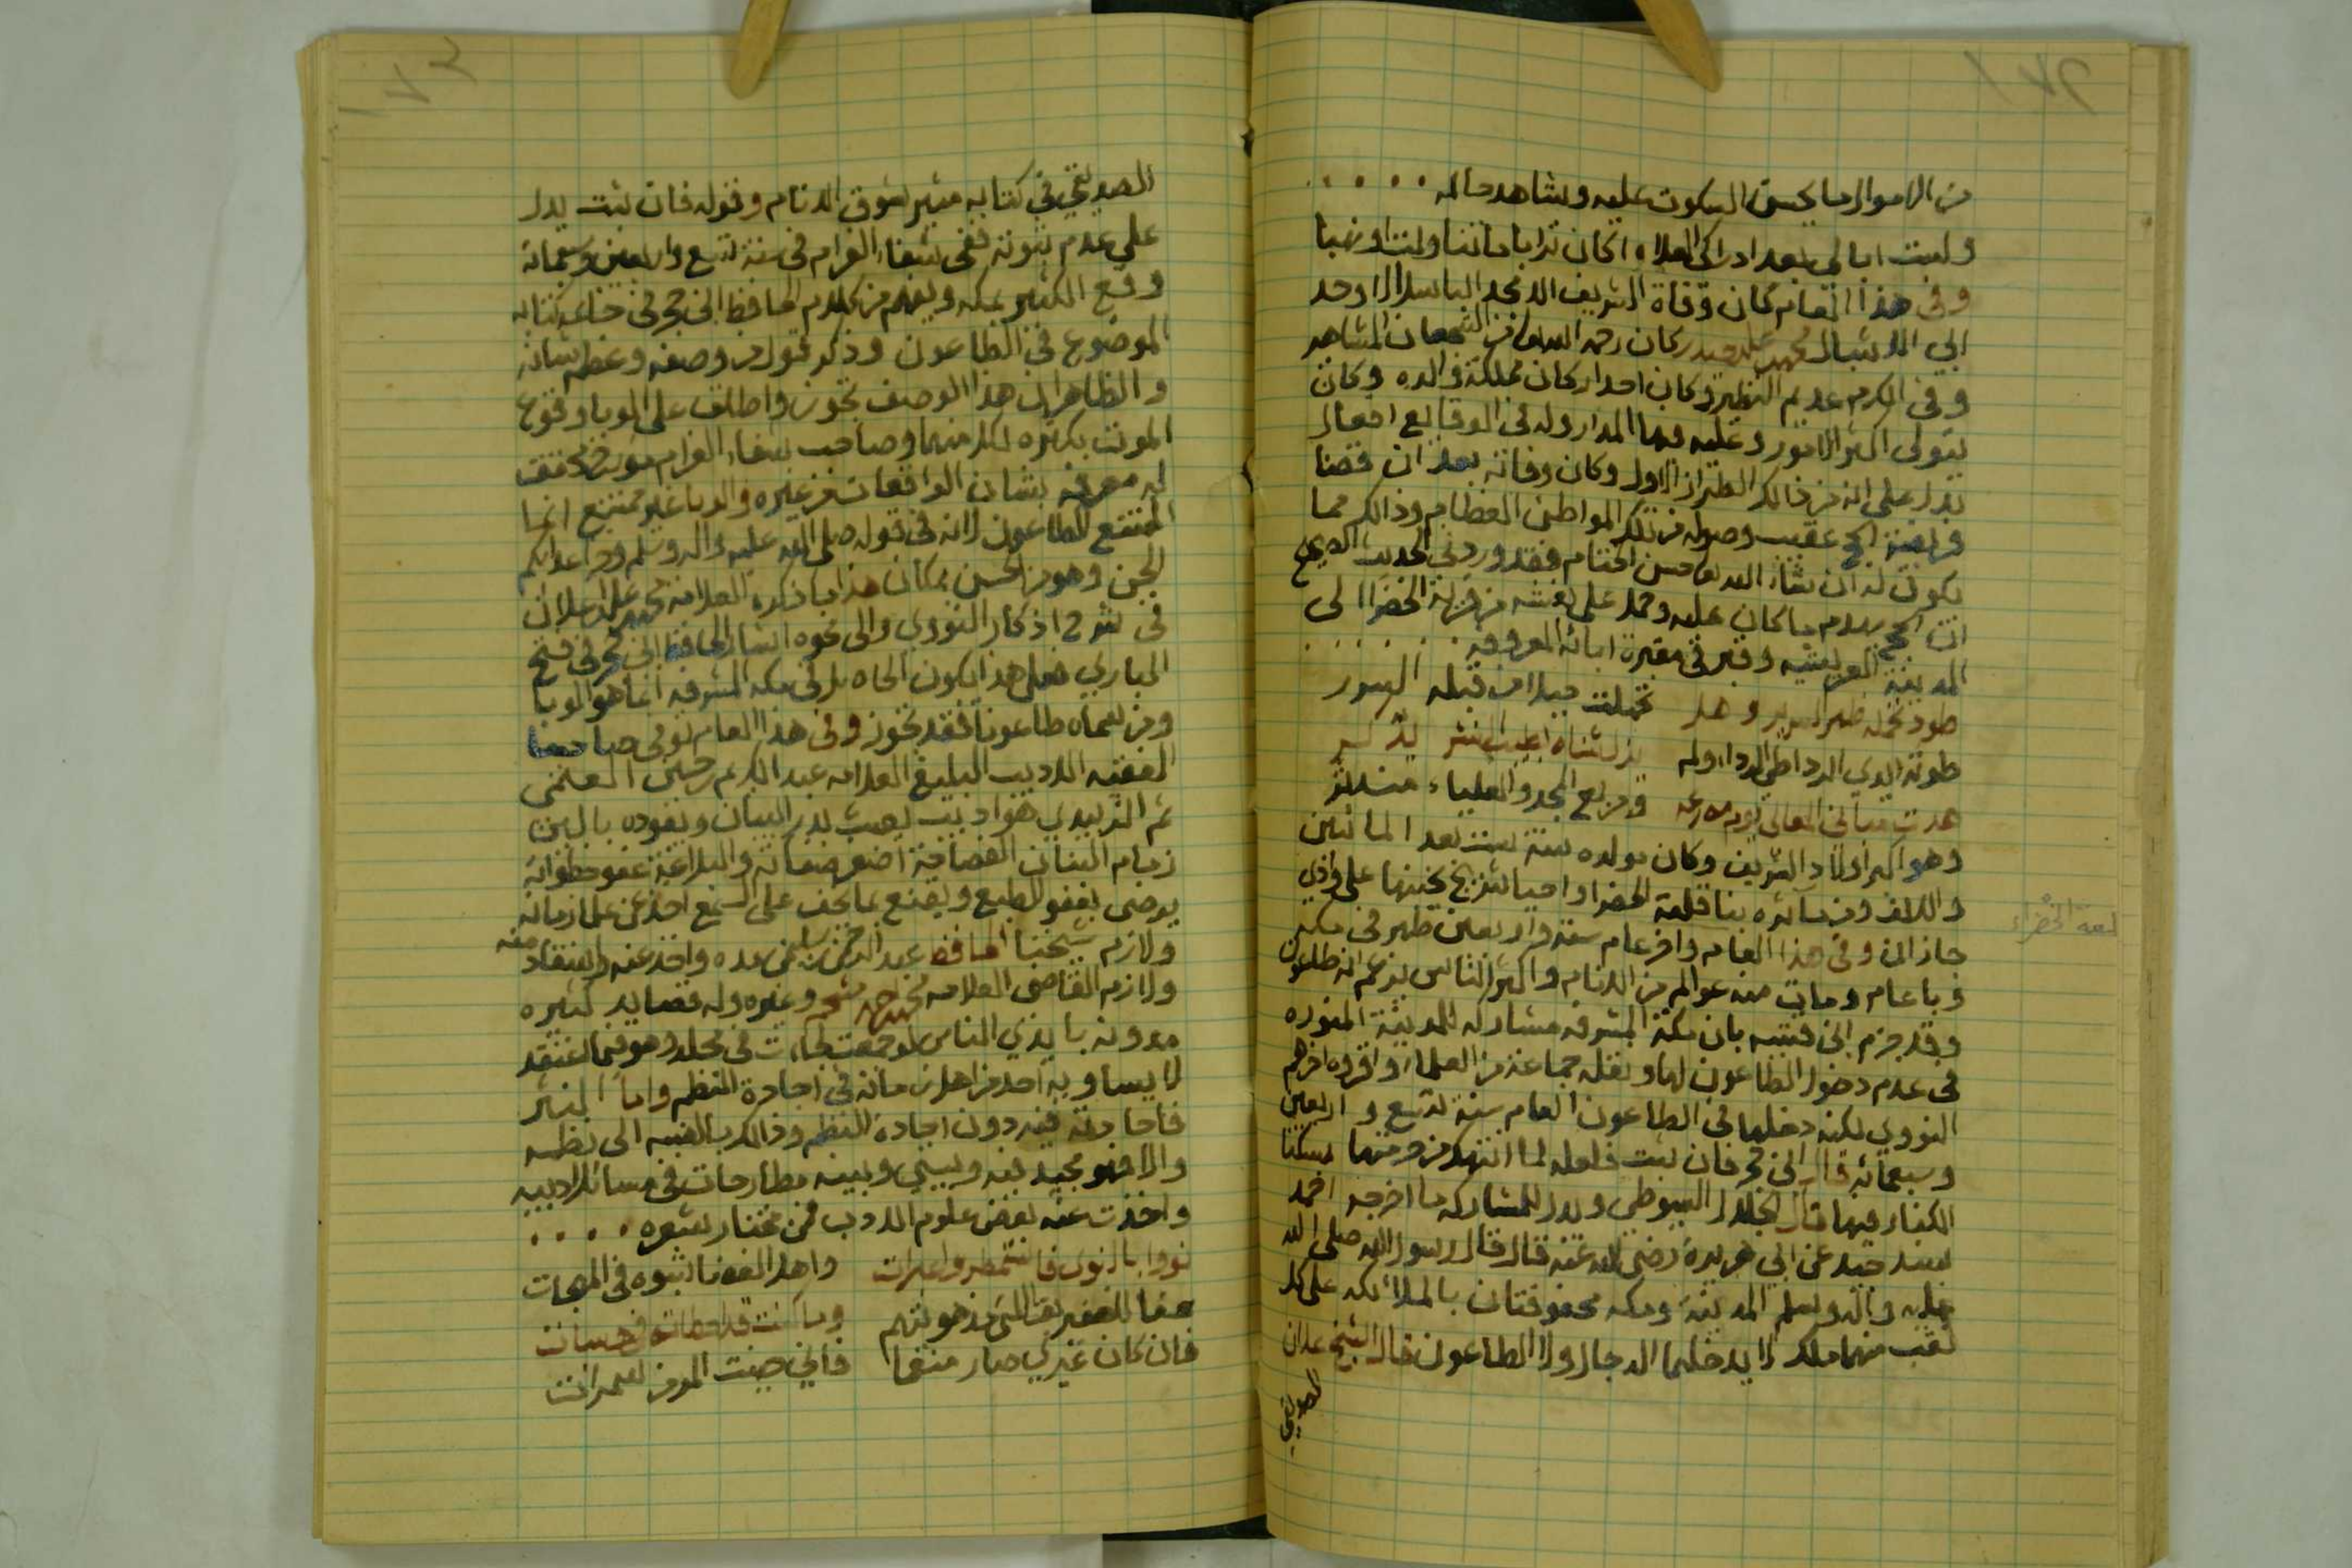 من الاموال ما يحسن السكوت عليه ولشاهد حاله
ولست ابالي بعد ادراكي العلاء اكان تراثا ما تناولت او نهبا
وفي هذا العام كان وفاة الشريف الامجد الباسل الاوحد
ابي الاشبال محمد علي حيدر كان رحمه الله تعالى من الشجعان المشاهر
وفي الكرم عديم النظير وكان احد اركان مملكة والده وكان
يتولى اكثر الامور وعليه فيها المدار وله في الوقايع افعال
تدل على انه من ذالك الطراز الاول وكان وفاته بعد ان قضا
فريضة الحج عقيب وصوله من تلك المواطن العظام وذالك مما
يكون له ان شاء الله تعالى حسن الختام فقد ورد في الحديث الصحيح
ان الحج يهدم ما كان عليه وحمل على نعشه من قرية الخضرا الى
المدينة العريشيه وقبر في مقبرة ابائه المعروفه
طود تحمله ظهر السرير وهل تحملت جبلا من قبله السرر
طوته ايدي الردا طي الردا وله
هدت مباني المعالي يوم مصرعه ومربع المجد والعلياء مندثر
وهو اكبر اولاد الشريف وكان مولده سنة ست بعد المائتين
والالف ومن مآثره بنا قلعة الخضرا واحيا
قلعة الخضراء
جازان وفي هذا العام وافر عام سنة واربعين ظهر في مكه
وبا عام ومات منه عوالم من الانام واكثر الناس يزعم انه طاعون
وقد جزم ابن قتيبه بان مكة المشرفه مشاركه للمدينة المنوره
في عدم دخول الطاعون لها ونقله جماعة من العلماء واقروه اخرهم
النووي لكنه دخلها في الطاعون العام سنة تسع واربعين
وسبعمائه قال ابن حجر فان ثبت فلعله لما انتهك من حرمتها بسكنا
الكفار فيها قال الجلال السيوطي ويدل للمشاركه ما اخرجه احمد
بسند جيد عن ابي هريرة رضي الله عنه قال قال رسول الله صلى الله
عليه واله وسلم المدينة ومكه محفوفتان بالملائكه على كل
نقب منهما ملك لا يدخلهما الدجال ولا الطاعون قال الشيخ علان
الصديقي
الصديقي في كتابه مثير شوق الانام وقوله فان ثبت يدل
على عدم ثبوته ففي شفاء الغرام في سنة تسع واربعين وسبعمائة
وقع الكثير بمكه ويفهم من كلام الحافظ ابن حجر في خاتمة كتابه
الموضوع في الطاعون وذكر قول من وصفه وعظم شانه
والظاهر ان هذا الوصف تجوز واطلق على الوبا وقوع
الموت بكثره لكل منهما وصاحب شفاء الغرام مورخ محقق
له معرفه بشان الواقعات من غيره والوبا غير ممتنع انما
الممتنع الطاعون لانه في قوله صلى الله عليه واله وسلم وخز اعدائكم
الجن وهو من الحسن بمكان هذا ما ذكره العلامه محمد علي علان
في شرح اذكار النووي والى نحوه اشار الحافظ ابن حجر في فتح
الباري فعلى هذا يكون الحاصل في مكه المشرفه انما هو الوبا
ومن سماه طاعونا فقد تجوز وفي هذا العام توفي صاحبنا
الفقيه الاديب البليغ العلامه عبد الكريم حسين العتمي
ثم الزبيدي هو اديب يعبث بدر البيان ويقوده باللين
زمام البنان الفصاحة اضعر صفاته والبلاغة عفو خطواته
يرضى بعفو الطبع ويقنع بما يخف على السمع اخذ عن علما زمانه
ولازم شيخنا الحافظ عبد الرحمن سليمان مده واخذ عنه واستفاد منه
ولازم القاضي العلامه محمد احمد مشحم وغيره وله قصايد كثيره
مدونه بايدي الناس لو جمعت لجاءت في مجلد وهو فيما اعتقد
لا يساويه احد من اهل زمانه في اجادة النظم واما النثر
فاجادته فيه دون اجادة النظم وذالك بالنسبه الى نظمه
والا فهو مجيد فيه وبيني وبينه مطارحات في مسائل ادبيه
واخذت عنه بعض علوم الادب فمن مختار شعره
نووا بالنوى فاستمطروا عبرات واهل الغضا شبوه في المهجات
فان كان غيري صار منفا فاني جبت الموز لعمرات